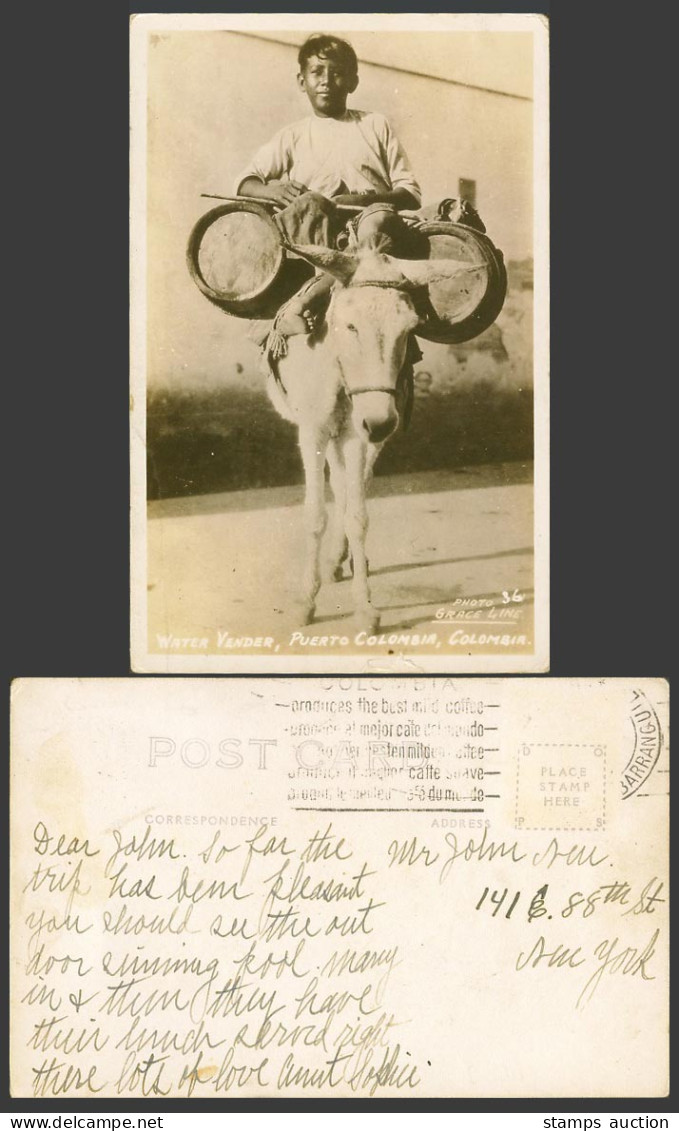 PHOTO 36
GRACE LINE
WATER VENDER, PUERTO COLOMBIA, COLOMBIA.
COLOMBIA
produces the best mild coffee
produce el mejor café del mundo
POST CARD
BARRANQUI
D O
PLACE
STAMP
HERE
P S
CORRESPONDENCE
ADDRESS
Dear John. So far the
trip has been pleasant
you should see the out
door swimming pool. many
in & then they have
their lunch served right
there lots of love Aunt Sophie.
Mr John
141 E. 88th St
New York
stamps auction